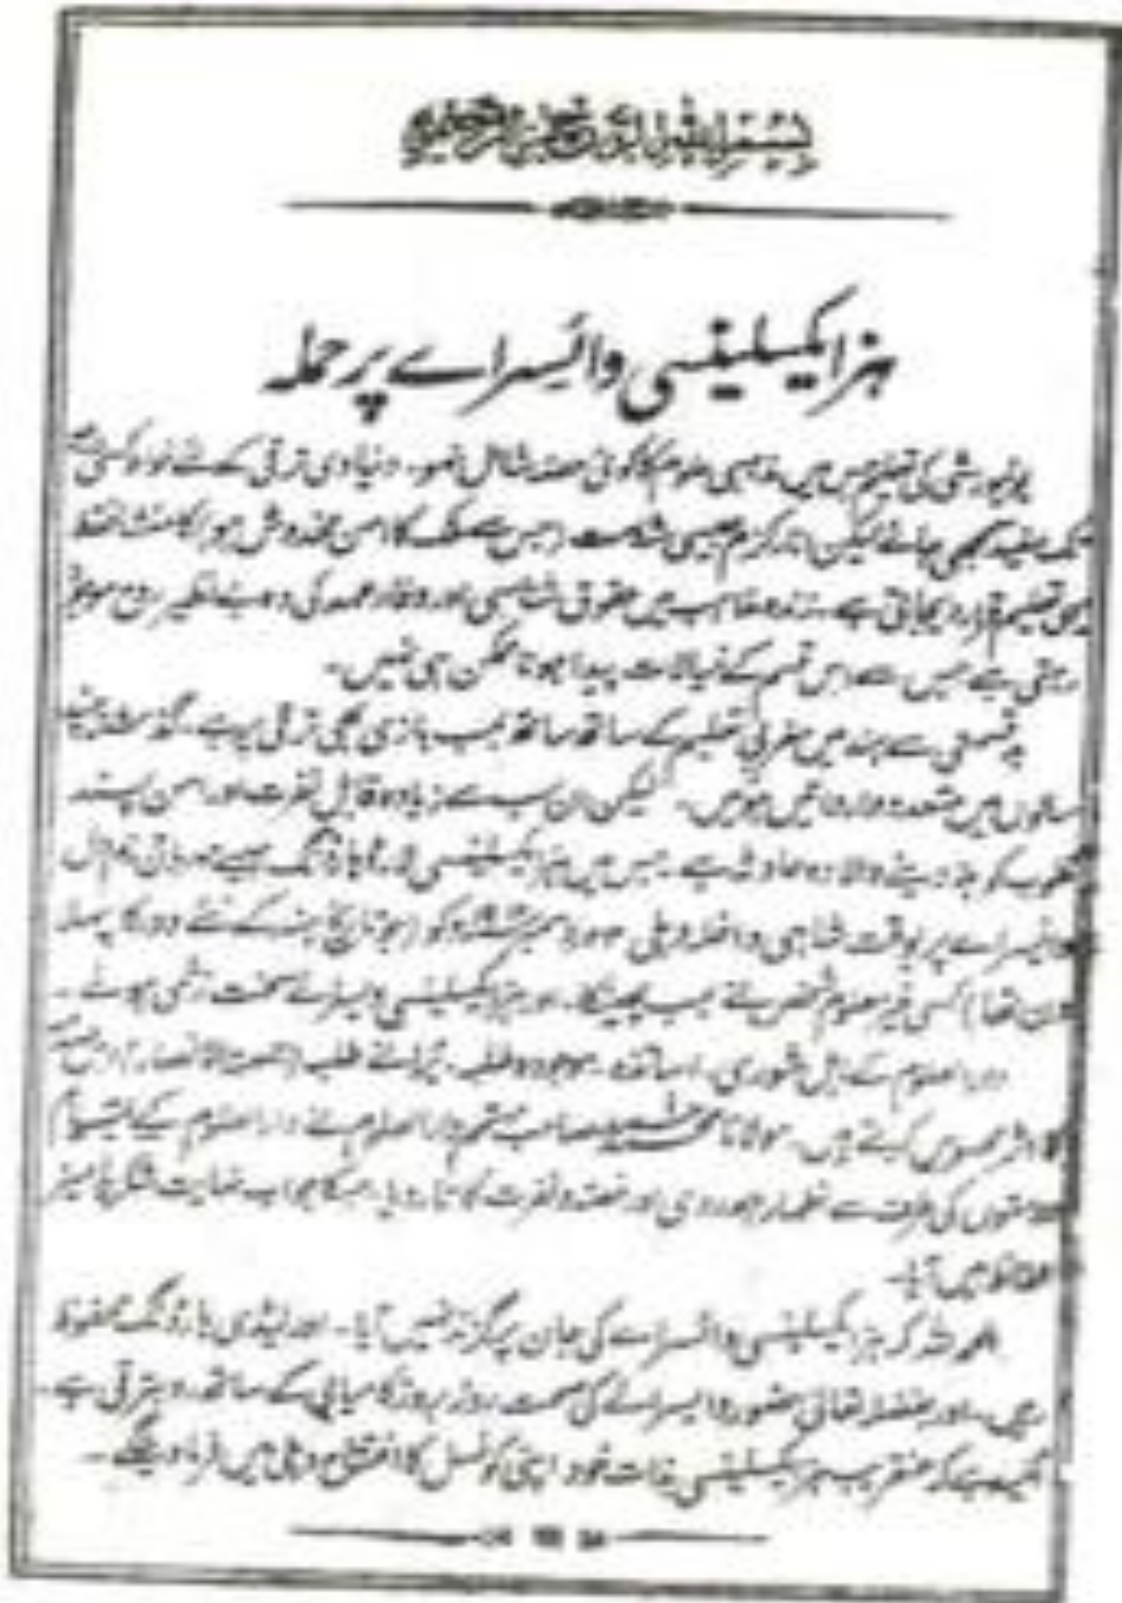 بسم اللہ الرحمن الرحیم
ہز ایکسلینسی وائسراے پر حملہ
یونیورسٹی کی تعلیم جس میں مذہبی علوم کا کوئی حصہ شامل نہو۔ دنیاوی ترقی کے لئے خواہ کسی
مفید سمجھی جائے لیکن
تعلیم قرار دیجاتی ہے۔ زندہ مذاہب میں حقوق شناسی اور وفاء عہد کی وہ بے نظیر روح موجود
رہتی ہے جس سے اس قسم کے خیالات پیدا ہونا ممکن ہی نہیں۔
بدقسمتی سے ہند میں مغربی تعلیم کے ساتھ ساتھ بمب بازی بھی ترقی پر ہے۔ گذشتہ چند
سالوں میں متعدد وارداتیں ہوئیں۔ لیکن ان سب سے زیادہ قابل نفرت اور امن پسند
قلوب کو دینے والا وہ حادثہ ہے۔ جس میں ہز ایکسلینسی لارڈ ہارڈنگ جیسے
وائسراے پر بوقت شاہی داخلہ دہلی دسمبر کو (جو تاریخ ہند کے نئے دور کا پہلا
دن تھا) کسی غیر معلوم شخص نے بمب پھینکا۔ اور ہز ایکسلینسی ویسراے سخت زخمی ہوئے۔
دارالعلوم کے اہل شوری۔ اساتذہ۔ موجودہ طلبہ۔ پرانے طلبہ (جمعیۃ الانصار) اس صدمہ
کا اثر محسوس کرتے ہیں۔ مولانا صاحب مہتمم دارالعلوم نے دارالعلوم کے
کی طرف سے اظہار ہمدردی اور غصہ و نفرت کا تار دیا۔ جسکا جواب نہایت شکریہ آمیز
الفاظ میں آیا۔
الحمد للہ کہ ہز ایکسلینسی وائسراے کی جان پر گزند نہیں آیا۔ اور لیڈی ہارڈنگ محفوظ
رہیں۔ اور بفضلہ تعالیٰ حضور وایسراے کی صحت روز بروز کامیابی کے ساتھ رو بترقی ہے۔
امید ہے کہ عنقریب ہز ایکسلینسی بذات خود اپنی کونسل کا افتتاح دہلی میں فرماویں گے۔